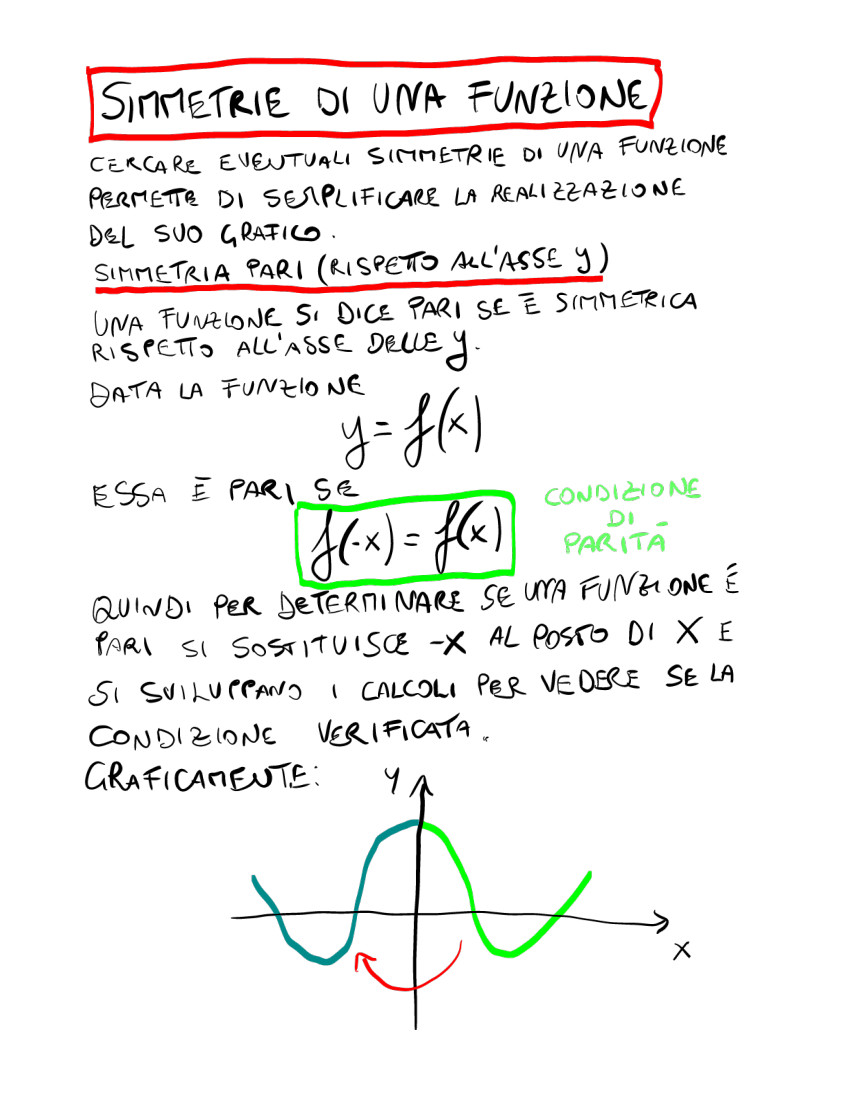 SIMMETRIE DI UNA FUNZIONE
CERCARE EVENTUALI SIMMETRIE DI UNA FUNZIONE
PERMETTE DI SEMPLIFICARE LA REALIZZAZIONE
DEL SUO GRAFICO.
SIMMETRIA PARI (RISPETTO ALL'ASSE y)
UNA FUNZIONE SI DICE PARI SE È SIMMETRICA
RISPETTO ALL'ASSE DELLE y.
DATA LA FUNZIONE
y = f(x)
ESSA È PARI SE
f(-x) = f(x)
CONDIZIONE
DI
PARITÀ
QUINDI PER DETERMINARE SE UNA FUNZIONE È
PARI SI SOSTITUISCE -X AL POSTO DI X E
SI SVILUPPANO I CALCOLI PER VEDERE SE LA
CONDIZIONE VERIFICATA.
GRAFICAMENTE:
y
x